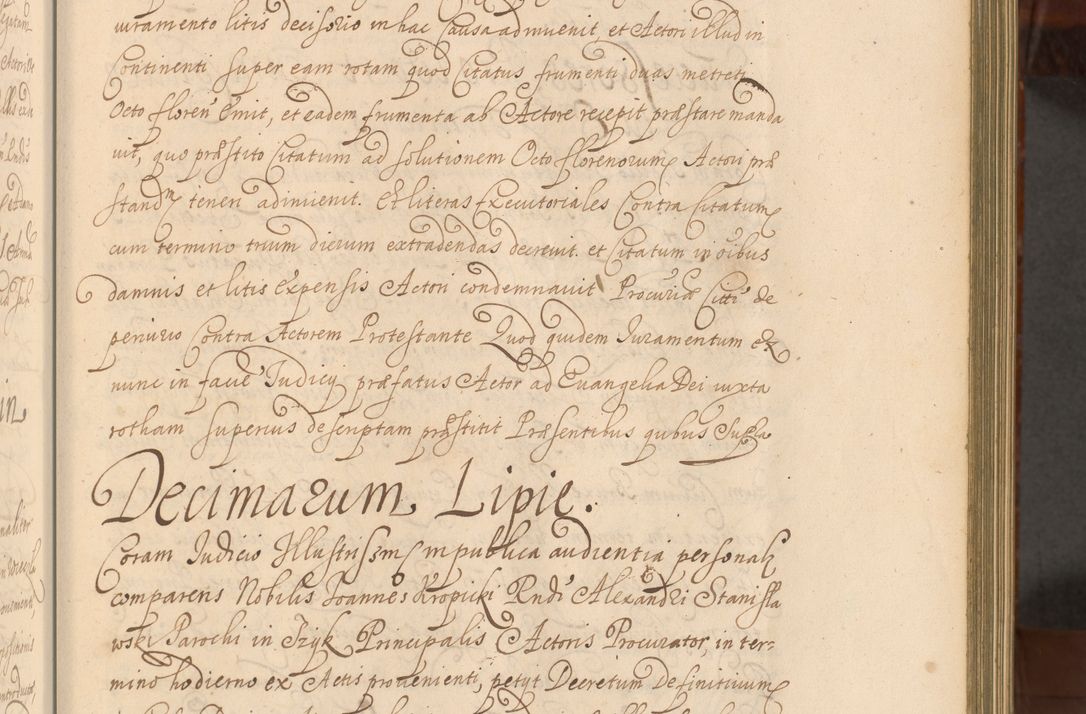 iuramento litis decisorio in hac Causa admuenit, et Actori illud in
Continenti super eam rotam quod Citatus frumenti duas metret
Octo floren̄ Emit, et eadem frumenta ab Actore recepit præstare manda
uit, quo præstito Citatum ad solutionem Octo florenorum Actori præ
standm teneri adinuenit. Et literas Executoriales Contra Citatum
cum termino trium dierum extradendas decreuit. et Citatum in oībus
damnis et litis Expensis Actori condemnauit Procuria Citti de
periurio Contra Actorem Protestante Quod quidem Iuramentum ex
nunc in facie Iudicij præfatus Actor ad Euangelia Dei iuxta
rotham superius descriptam præstitit Præsentibus qubus Supra
Decimarum Lipie.
Coram Iudicio Illustrissmi in publica audientia personalr
comparens Nobilis Ioannes Kropicki Rndi Alexandri Stanisla
wski Parochi in Izyk Principalis Actoris Procurator, in ter=
mino hodierno ex Actis prouenienti, petyt Decretum Definitiuum